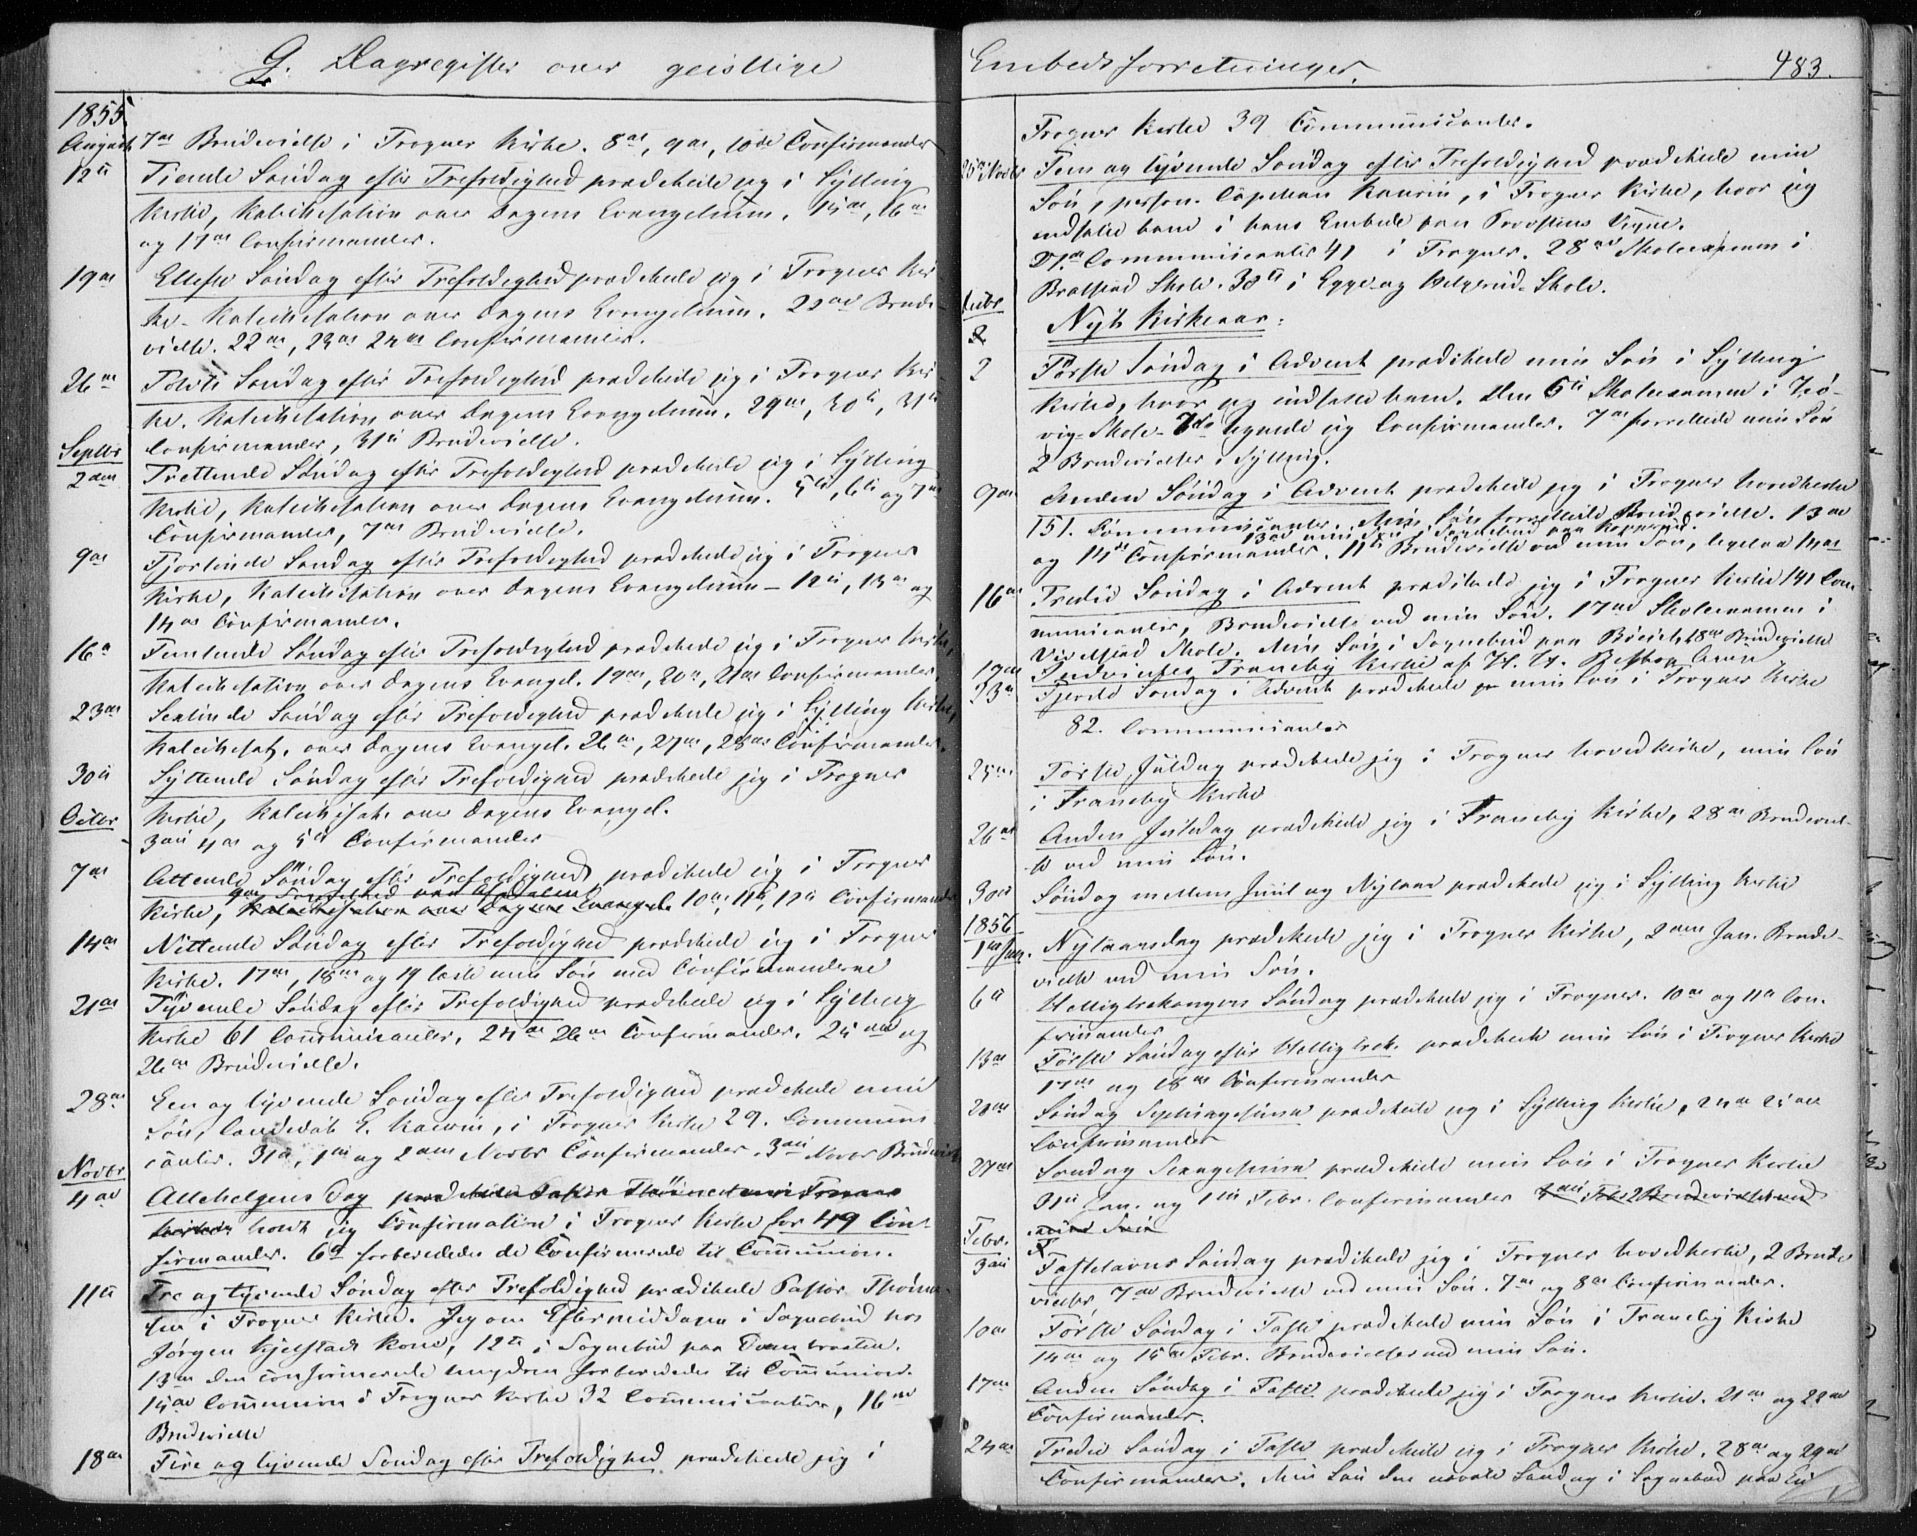 G. Dagregister over geistlige
1855
August 7de Brudevielse i Frogner Kirke. 8de, 9de, 10de Confirmander
12te Tiende Søndag efter Trefoldighed prædikede jeg i Sylling
Kirke, Katechisation over Dagens Evangelium. 15de, 16de
og 17de Confirmander.
19de Ellefte Søndag efter Trefoldighed prædikede jeg i Frogner Kir-
ke. Katechisation over Dagens Evangelium. 22de Brude-
vielse. 22de, 23de 24de Confirmander.
26de Tolvte Søndag efter Trefoldighed prædikede jeg i Frogner Kir-
ke. Katechisation over Dagens Evangelium. 29de, 30te, 31te
Confirmander, 31te Brudevielse.
Septbr
2den Trettende Søndag efter Trefoldighed prædikede jeg i Sylling
Kirke, Katechisation over Dagens Evangelium. 5te, 6te og 7de
Confirmander, 7de Brudevielse.
9de Fjortende Søndag efter Trefoldighed prædikede jeg i Frogner
Kirke, Katechisation over Dagens Evangelium - 12te, 13de og
14de Confirmander.
16de Femtende Søndag efter Trefoldighed prædikede jeg i Frogner Kirke,
Katechisation over Dagens Evangel. 19de, 20de, 21de Confirmander.
23de Sextende Søndag efter Trefoldighed prædikede jeg i Sylling Kirke,
Katechisat. over Dagens Evangel. 26de, 27de, 28de Confirmander.
30te Syttende Søndag efter Trefoldighed prædikede jeg i Frogner
Kirke, Katechisat. over Dagens Evangel.
Octbr 3die 4de og 5te Confirmander
7de Attende Søndag efter Trefoldighed prædikede jeg i Frogner
Kirke, Katechisation over Dagens Evangel. 10de, 11te, 12te Confirmander
14de Nittende Søndag efter Trefoldighed prædikede jeg i Frogner
Kirke. 17de, 18de og 19 læste min Søn med Confirmanderne
21de Tyvende Søndag efter Trefoldighed prædikede jeg i Sylling
Kirke 61 Communicanter. 24de 26de Confirmander. 25de og
26de Brudevielse.
28de Een og tyvende Søndag efter Trefoldighed prædikede min
Søn, Candidat E. Kaurin, i Frogner Kirke 29. Communi-
canter. 31te, 1ste og 2den Novbr Confirmander. 3die Novbr Brudeviels
Novbr
4de Allehelgens Dag
holdt jeg Confirmation i Frogner Kirke for 49 Con-
firmander. 6te forberedede de Confirmerede til Communion.
11te Tre og tyvende Søndag efter Trefoldighed prædikede Pastor Thøme-
sen i Frogner Kirke. Jeg om Eftermiddagen i Sognebud hos
Jørgen Kjelstads Kone, 12te i Sognebud paa
13de den confirmerede Ungdom forberedes til Communion.
14de Communion i Frogner Kirke 32 Communicanter, 16de
Brudevielse
18de Fire og tyvende Søndag efter Trefoldighed prædikede jeg i
Embedsforretninger. 483.
Frogner Kirke 39 Communicanter.
25de Novbr Fem og tyvende Søndag efter Trefoldighed prædikede min
Søn, person. Capellan Kaurin, i Frogner Kirke, hvor jeg
indsatte ham i hans Embede paa Provstens Vegne.
Communicanter 41 i Frogner. 28de Skoleexamen i
Skole. 30te i Egge- og Helgerud-Skole.
Decbr
Nyt Kirkeaar.
2 Første Søndag i Advent prædikede min Søn i Sylling
Kirke, hvor jeg indsatte ham. Den 6te Skoleexamen i
-Skole. 7de Confirmander. 7de forrettede min Søn
2 Brudevielser i Sylling.
9de Anden Søndag i Advent prædikede jeg i Frogner Hovedkirke
151. Communicanter. Min Søn forrettede Brudevielse. 13de
og 14de Confirmander. 11te Brudevielse ved min Søn, ligesaa 14de
16de Tredie Søndag i Advent prædikede jeg i Frogner Kirke 141 Com-
municanter, Brudevielse ved min Søn. 17de Skoleexamen i
Skole. Min Søn i Sognebud paa 18de Brudevielse
19de Indvies Tranby Kirke af H. H. Biskop Arup
23de Fjerde Søndag i Advent prædikede min Søn i Frogner Kirke
82. Communicanter
25de Første Juledag prædikede jeg i Frogner Hovedkirke, min Søn
i Tranby Kirke
26de Anden Juledag prædikede jeg i Tranby Kirke, 28de Brudeviel-
se ved min Søn.
30te Søndag mellem Juul og Nytaar prædikede jeg i Sylling Kirke
1856
1ste Jan. Nytaarsdag prædikede jeg i Frogner Kirke, 2den Jan. Brude-
vielse ved min Søn.
6te Helligtrekongers Søndag prædikede jeg i Frogner. 10de og 11te Con-
firmander
13de Første Søndag efter Helligtrek. prædikede min Søn i Frogner Kirke
17de og 18de Confirmander
20de Søndag Septuagesima prædikede jeg i Sylling Kirke, 24de 25de
Confirmander
27de Søndag Sexagesima prædikede min Søn i Frogner Kirke
31te Jan. og 1ste Febr. Confirmander
Febr.
3die Fastelavns Søndag prædikede jeg i Frogner Hovedkirke, 2 Brude-
vielser, 7de Brudevielse ved min Søn. 7de og 8de Confirmander.
10de Første Søndag i Faste prædikede min Søn i Tranby Kirke
14de og 15de Febr. Brudevielser ved min Søn.
17de Anden Søndag i Faste prædikede jeg i Frogner Kirke. 21de og 22de
Confirmander.
24de Tredie Søndag i Faste prædikede jeg i Frogner Kirke. 28de og 29de
Confirmander. Min Søn den Søndag i Sognebud paa